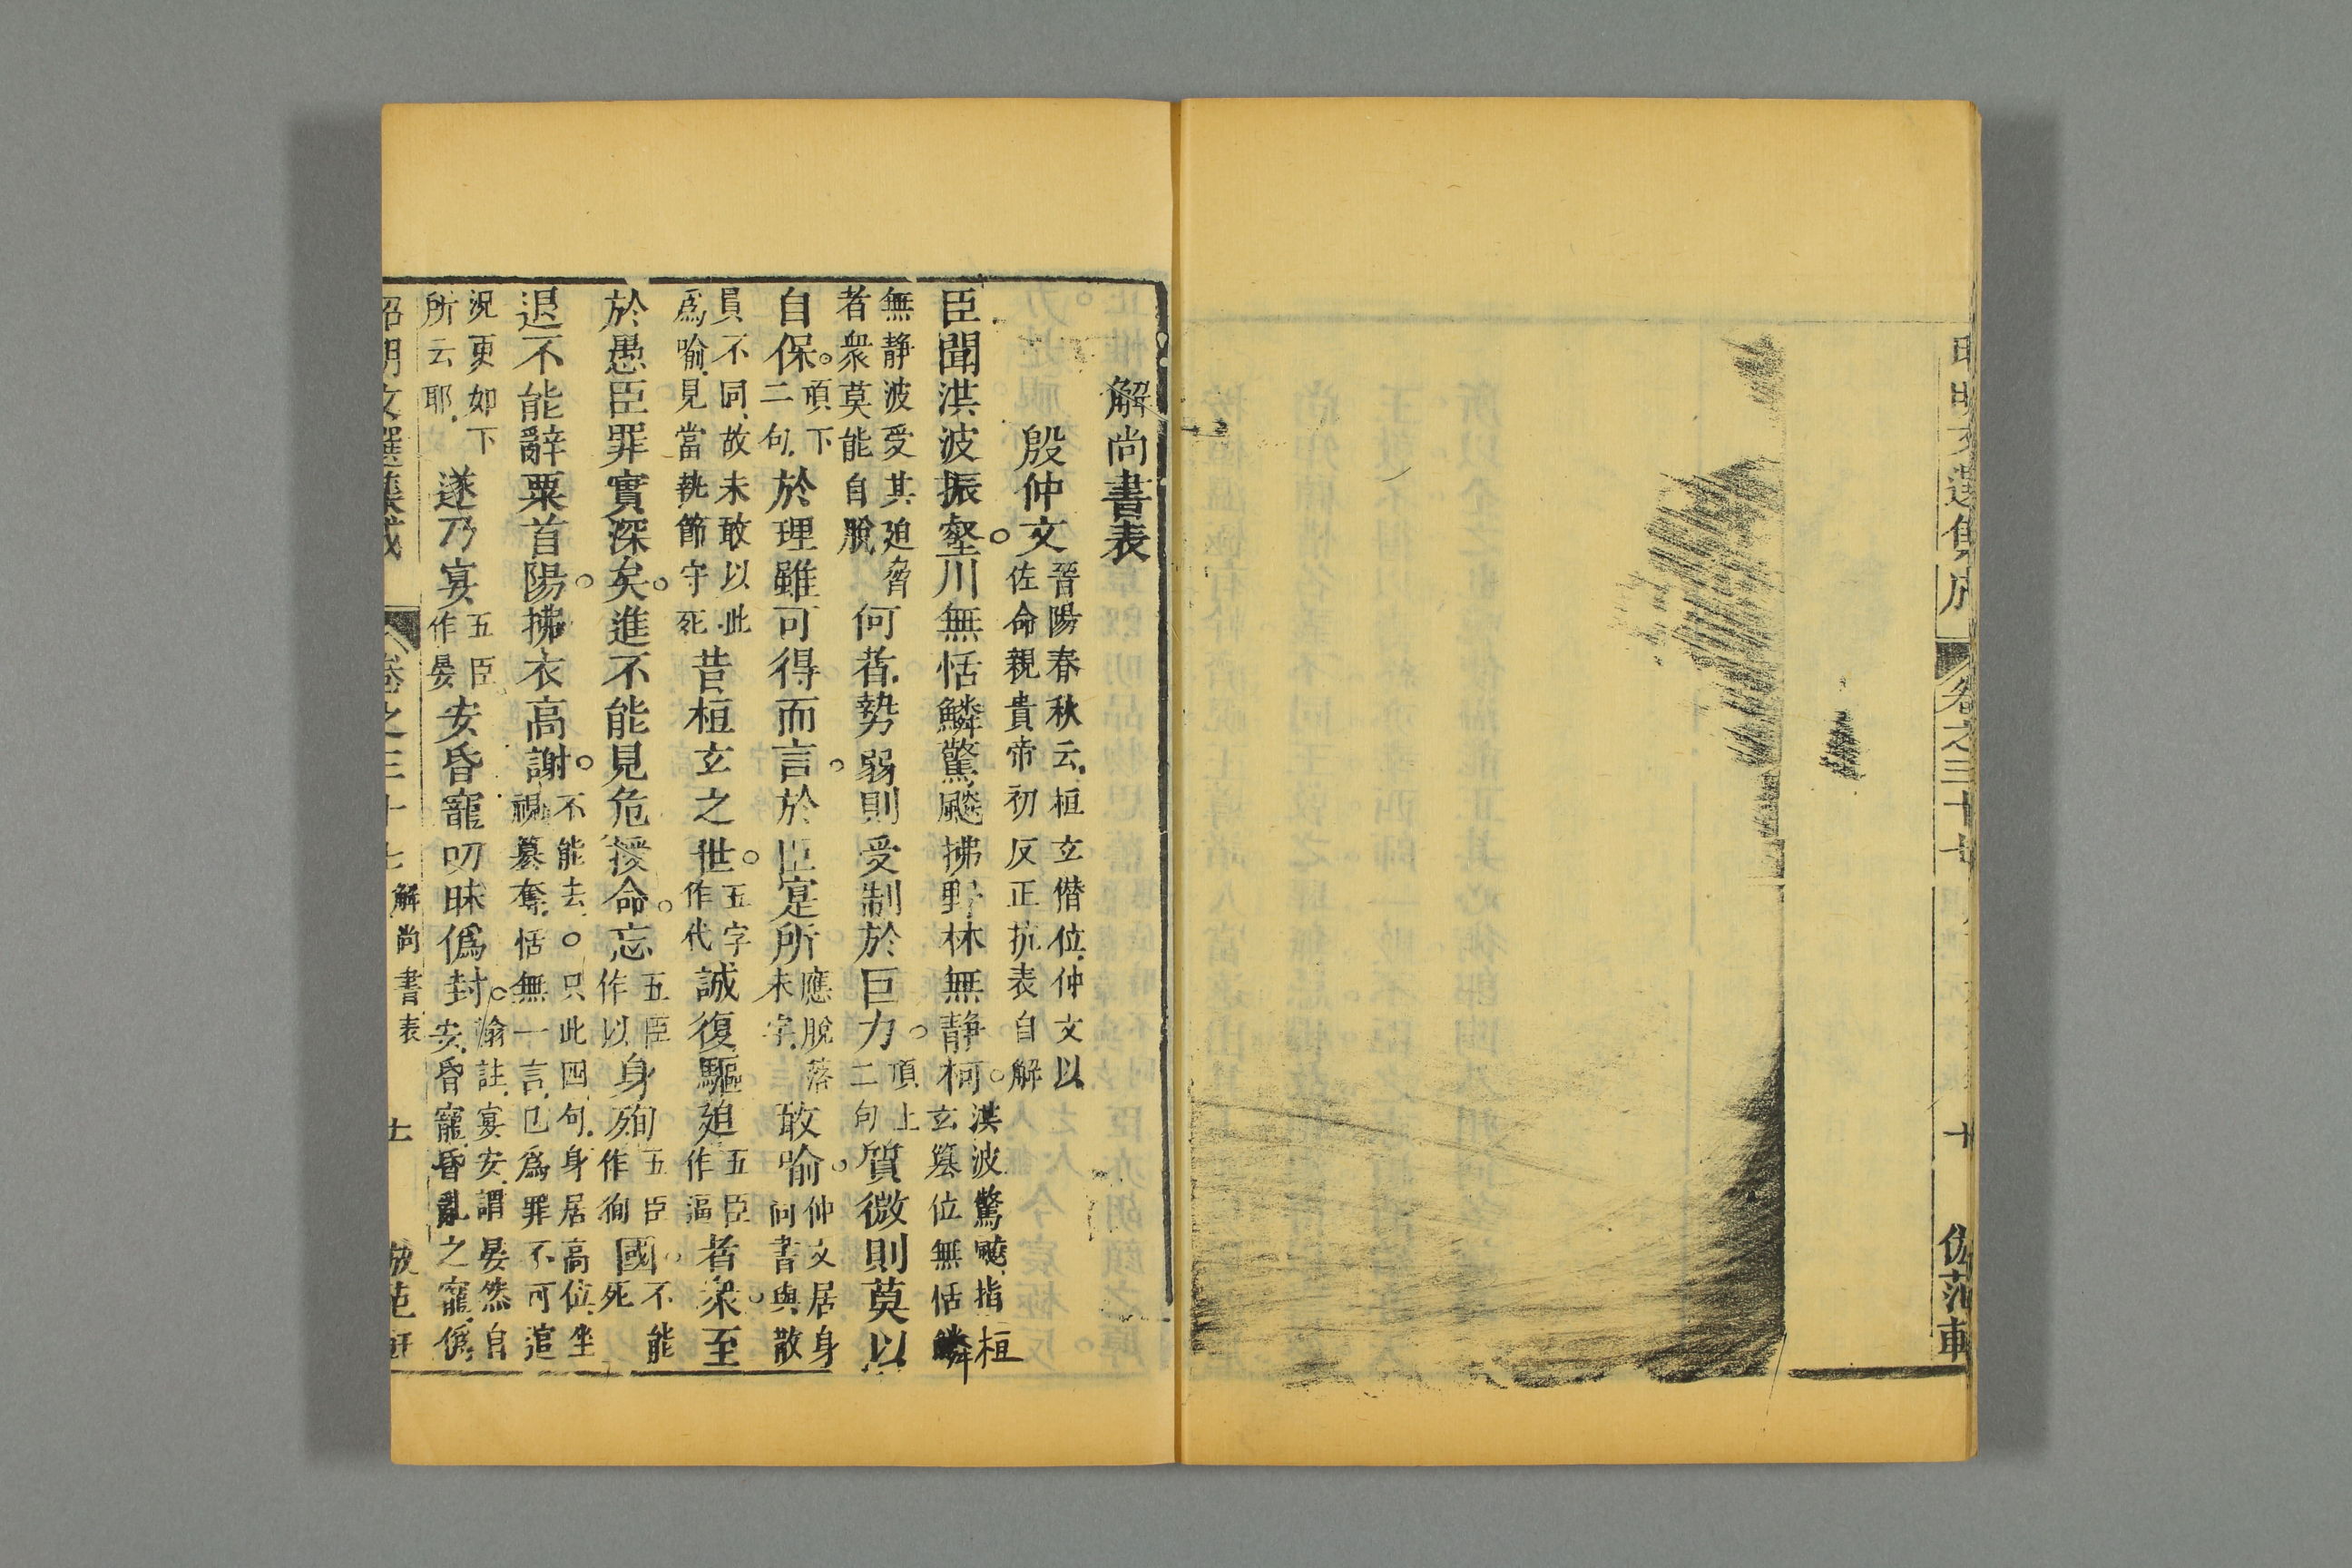 卷之三十七
十
倣范軒
解尚書表
殷仲文
晉陽春秋云桓玄僭位仲文以
佐命親貴帝初反正抗表自解
臣聞洪波振壑川無恬鱗驚飈拂野林無静柯
洪波驚飈指桓
玄簒位無恬鱗
無静波受其廹脅
者衆莫能自脫
何者勢弱則受制於巨力
頂上
二句
質微則莫以
自保
頂下
二句
於理雖可得而言於臣寔所
應脫落
未字
敢喻
仲文居身
何書與散
員不同故未敢以此
爲喻見當執節守死
昔桓玄之世
五字
作代
誠復驅廹
五臣
作逼
者衆至
於愚臣罪實深矣進不能見危授命忘
五臣
作以
身殉
五臣
作徇
國
不能
死
退不能辭粟首陽拂衣高謝
不能去○只此四句身居高位坐
視簒奪恬無一言已爲罪不可逭
況更如下
所云耶
遂乃宴
五臣
作晏
安昏寵叨昧僞封
瀚註宴安謂晏然自
安昏寵昏亂之寵僞
昭明文選集成
卷之三十七
解尚書表
十一
倣范軒